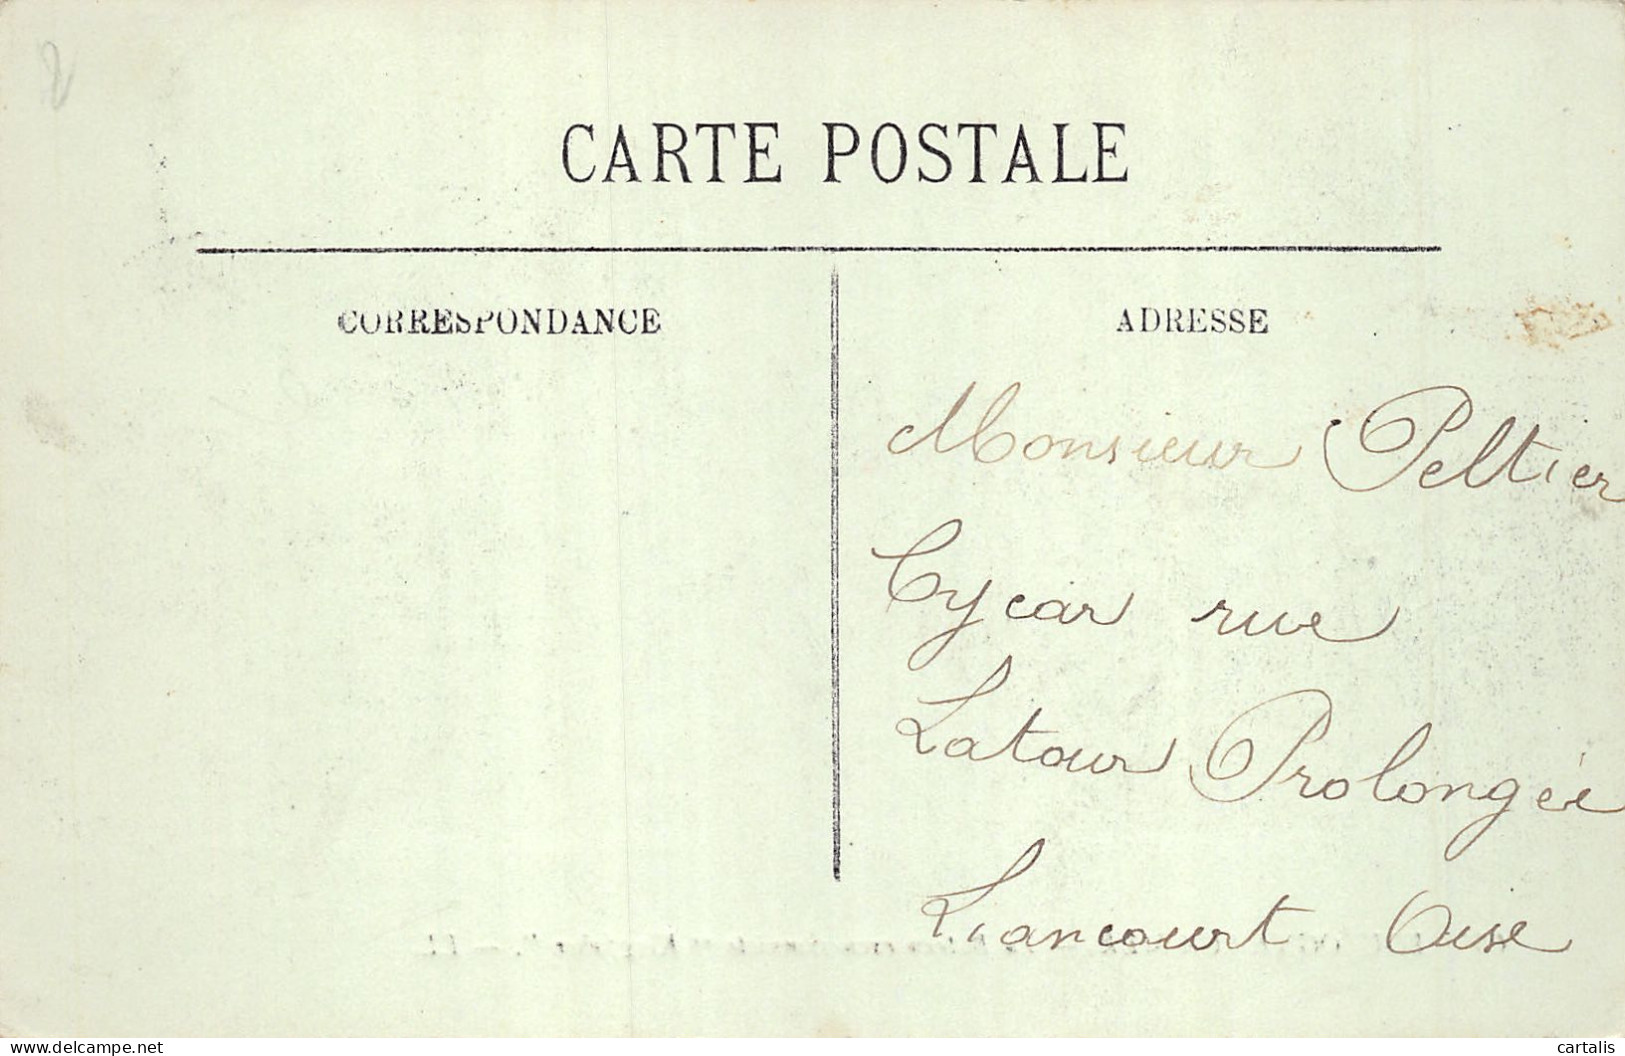 CARTE POSTALE
CORRESPONDANCE
ADRESSE
Monsieur Peltier
Cycar rue
Latour Prolongée
Liancourt Oise
www.delcampe.net
cartalis